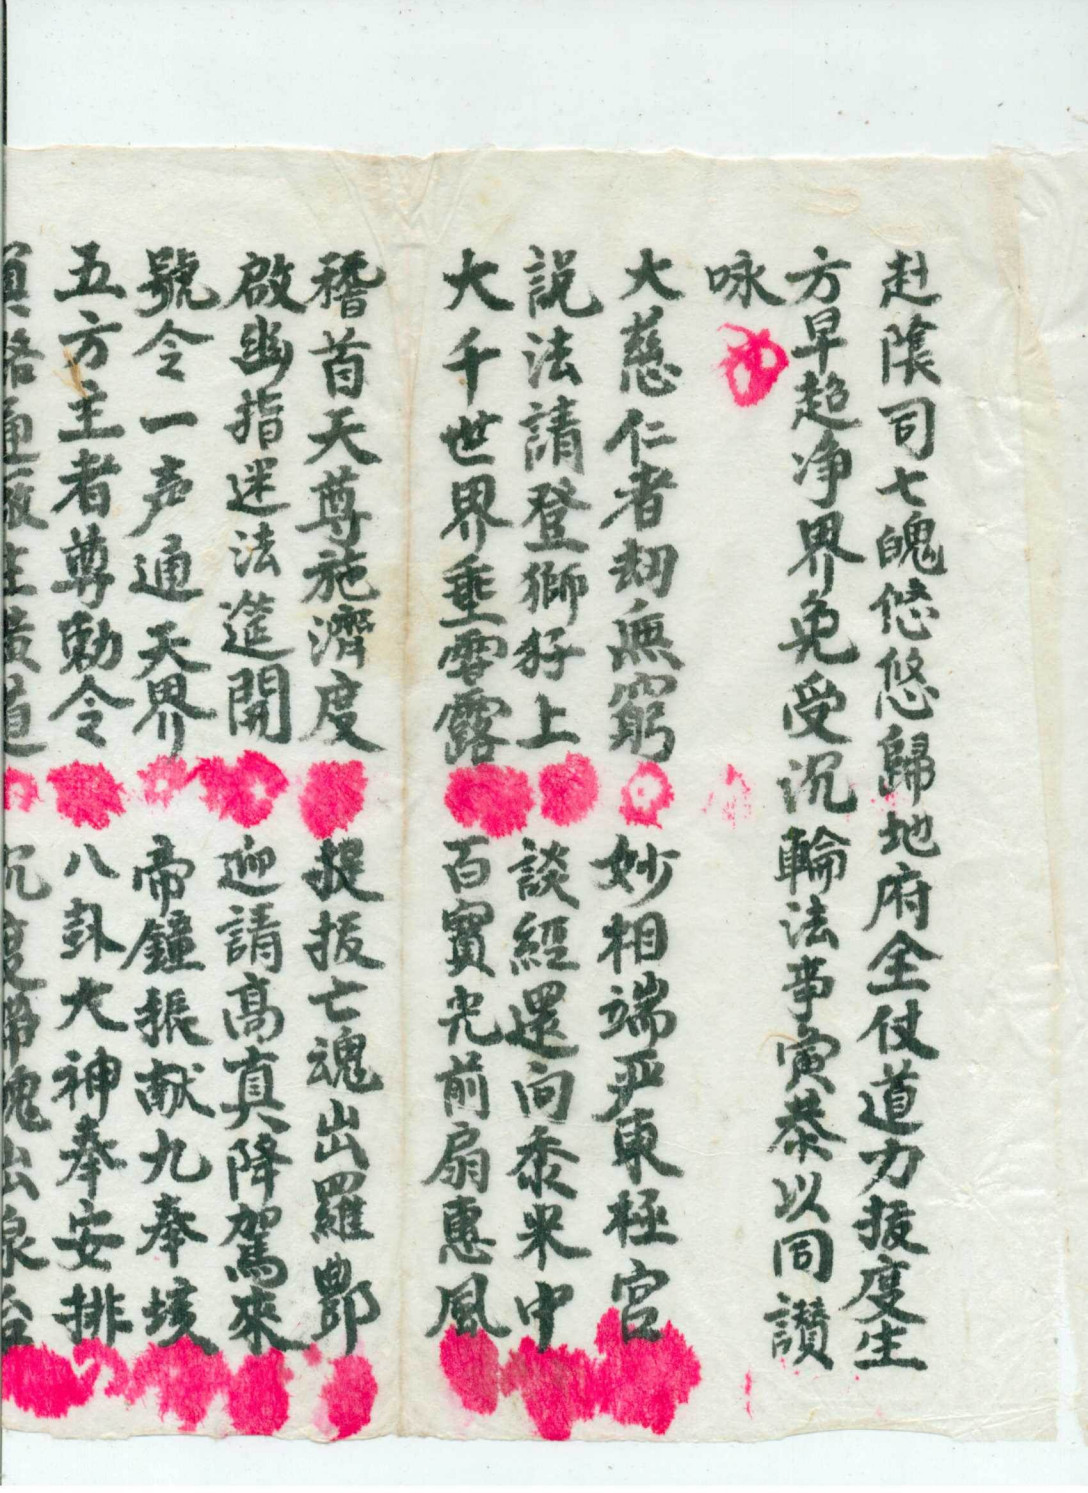 赴陰司七魄悠悠歸地府全仗道力拔度生
方早超净界免受沉輪法事寅恭以同讚
咏
大慈仁者劫無窮 妙相端严東極宮
説法請登獅犴上 談經還向黍米中
大千世界垂雲露 百寳光前扇惠風
稽首天尊施濟度 提拔亡魂出羅酆
啟幽指迷法筵開 迎請高真降駕來
號令一声通天界 帝鐘振献九奉垓
五方主者尊勅令 八卦大神奉安排
通 道 沉 魂出泉台